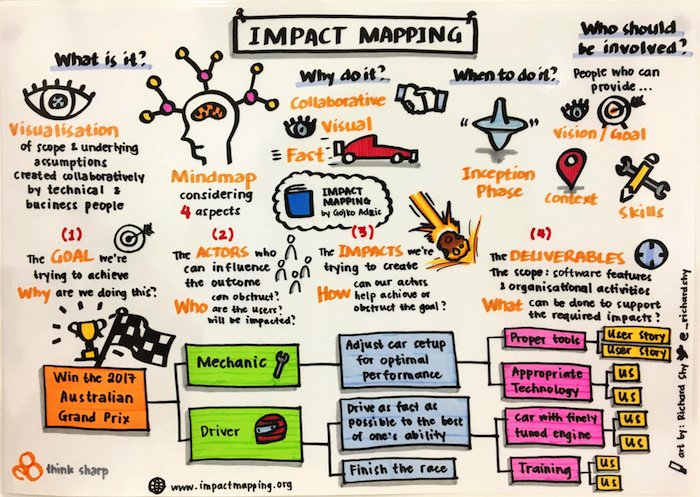 IMPACT MAPPING
What is it?
Visualisation
of scope & underlying
assumptions
created collaboratively
by technical &
business people
Mindmap
considering
4 aspects
Why do it?
Collaborative
Visual
Fast
IMPACT
MAPPING
by Gojko Adzic
When to do it?
"
"
Inception
Phase
Who should
be involved?
People who can
provide...
Vision/Goal
Context
Skills
(1)
The GOAL we're
trying to achieve
Why are we doing this?
(2)
The ACTORS who
can influence
the outcome
can obstruct?
Who are the users?
will be impacted?
(3)
The IMPACTS we're
trying to create
can our actors
How help achieve or
obstruct the goal?
(4)
The DELIVERABLES
The scope: software features
& organisational activities
What can be done to support
the required impacts?
Win the 2017
Australian
Grand Prix
Mechanic
Driver
Adjust car setup
for optimal
performance
Drive as fast as
possible to the best
of one's ability
Finish the race
Proper tools
Appropriate
Technology
Car with finely
tuned engine
Training
User Story
User Story
US
US
US
US
US
US
think sharp
www.impactmapping.org
art by: Richard Shy @_richardshy